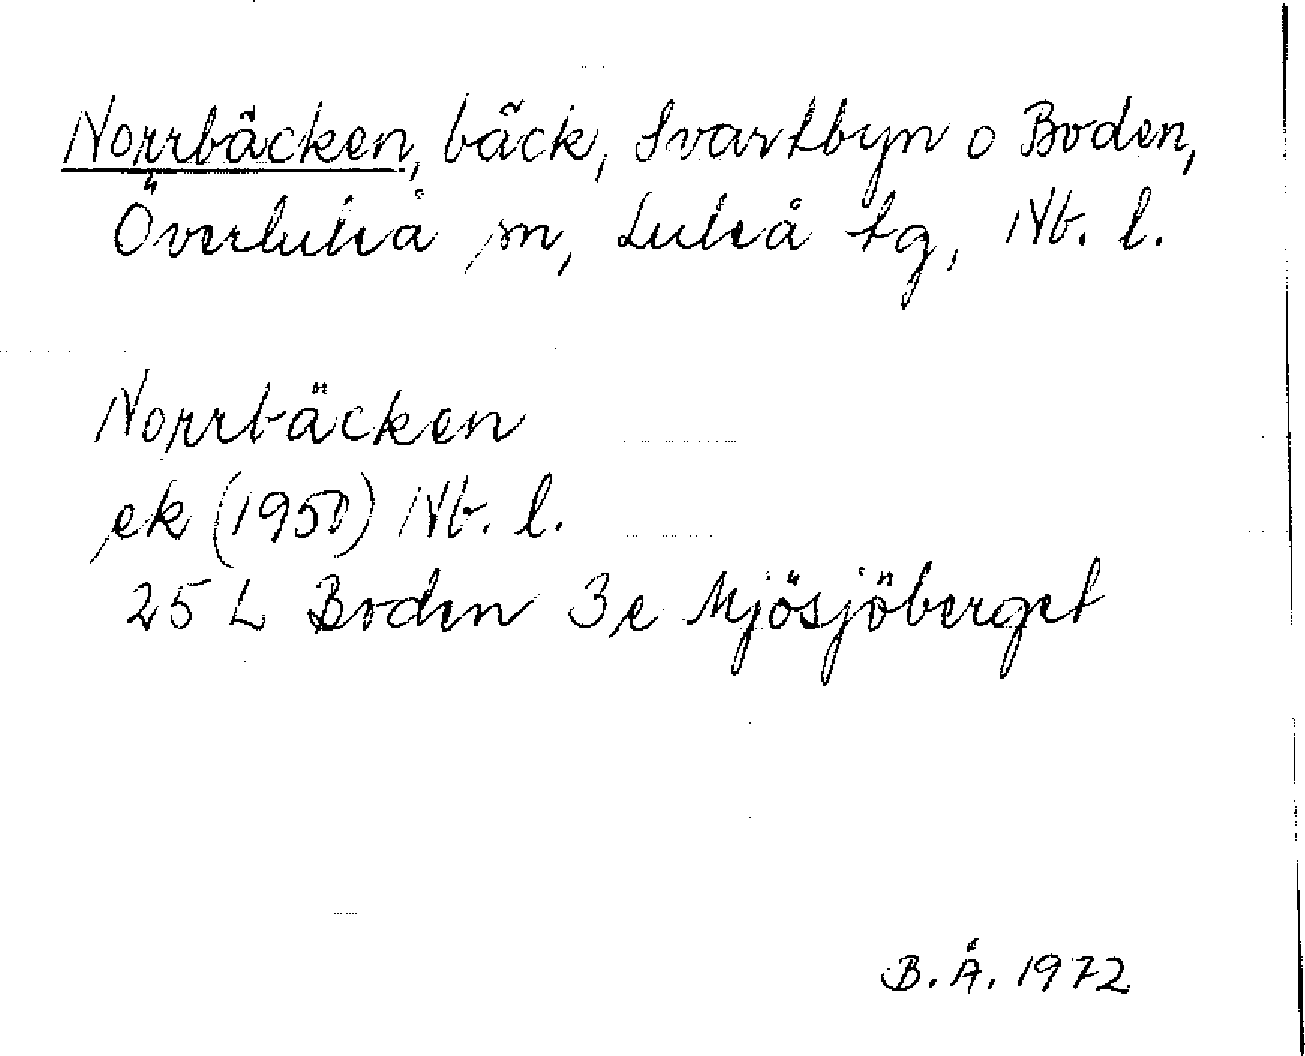 Norrbäcken, bäck, Svartbyn o Boden,
Överluleå sn, Luleå tg, Nb. l.
Norrbäcken
ek (1950) Nb. l.
25 L Boden 3e Mjösjöberget
B.Å. 1972